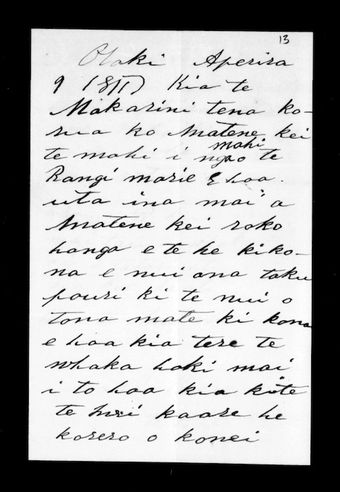 13
Otaki Aperira
9 1877 Kia te
Makarini tena ko-
rua ko Matene kei
te mahi i nga mahi o te
Rangi marie E hoa
uta ina mai a
Matene kei roko
hanga e te he ki ko-
na e nui ana taku
pouri ki te nui o
tona mate ki kona
e hoa kia tere te
whaka hoki mai
i to hoa kia kite
te iwi kaore he
korero o konei